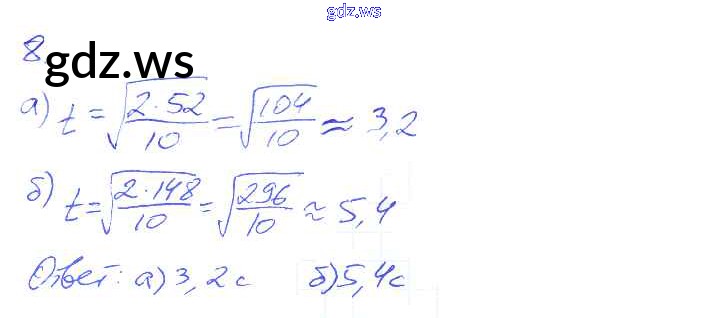 gdz.ws
8.
gdz.ws
а) t = √(2·52/10) = √(104/10) ≈ 3,2
б) t = √(2·148/10) = √(296/10) ≈ 5,4
Ответ: а) 3,2 с б) 5,4 с